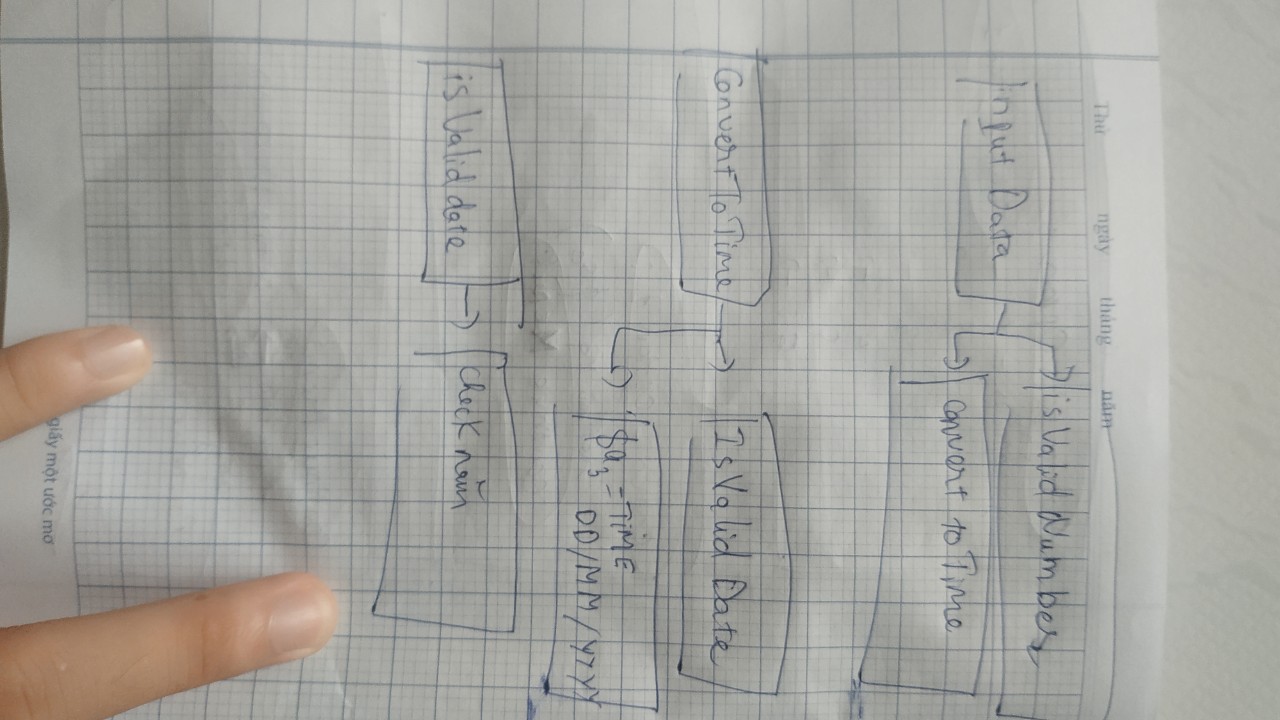 Thứ ngày tháng năm
is Valid Number
Input Data
Convert to Time
Convert To Time
Is Valid Date
$a3 = TIME
DD/MM/YYYY
is Valid date
check năm
giấy một ước mơ